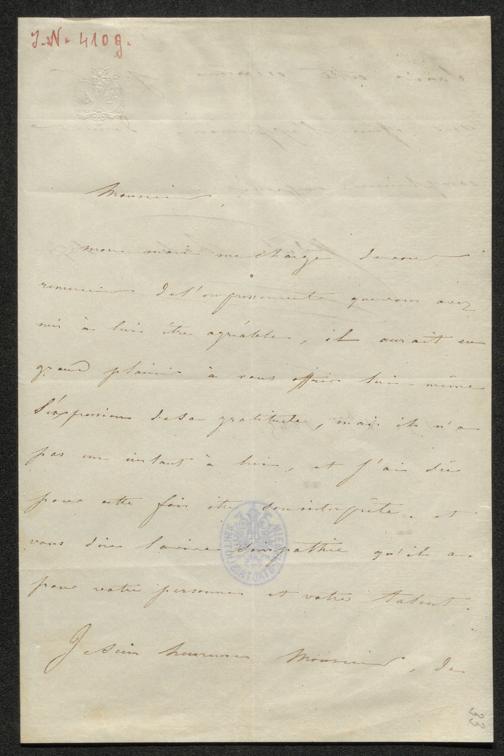 J.N. 4109.
Monsieur,
mon mari me charge de vous
remercier de l'empressement que vous avez
mis à lui être agréable, il aurait eu
grand plaisir à vous offrir lui même
l'expression de sa gratitude, mais il n'a
pas un instant à lui, et j'ai dû
pour cette fois être son interprète, et
vous dire la vive simpathie qu'il a
pour votre personne et votre talent.
Je suis heureuse Monsieur, de
33